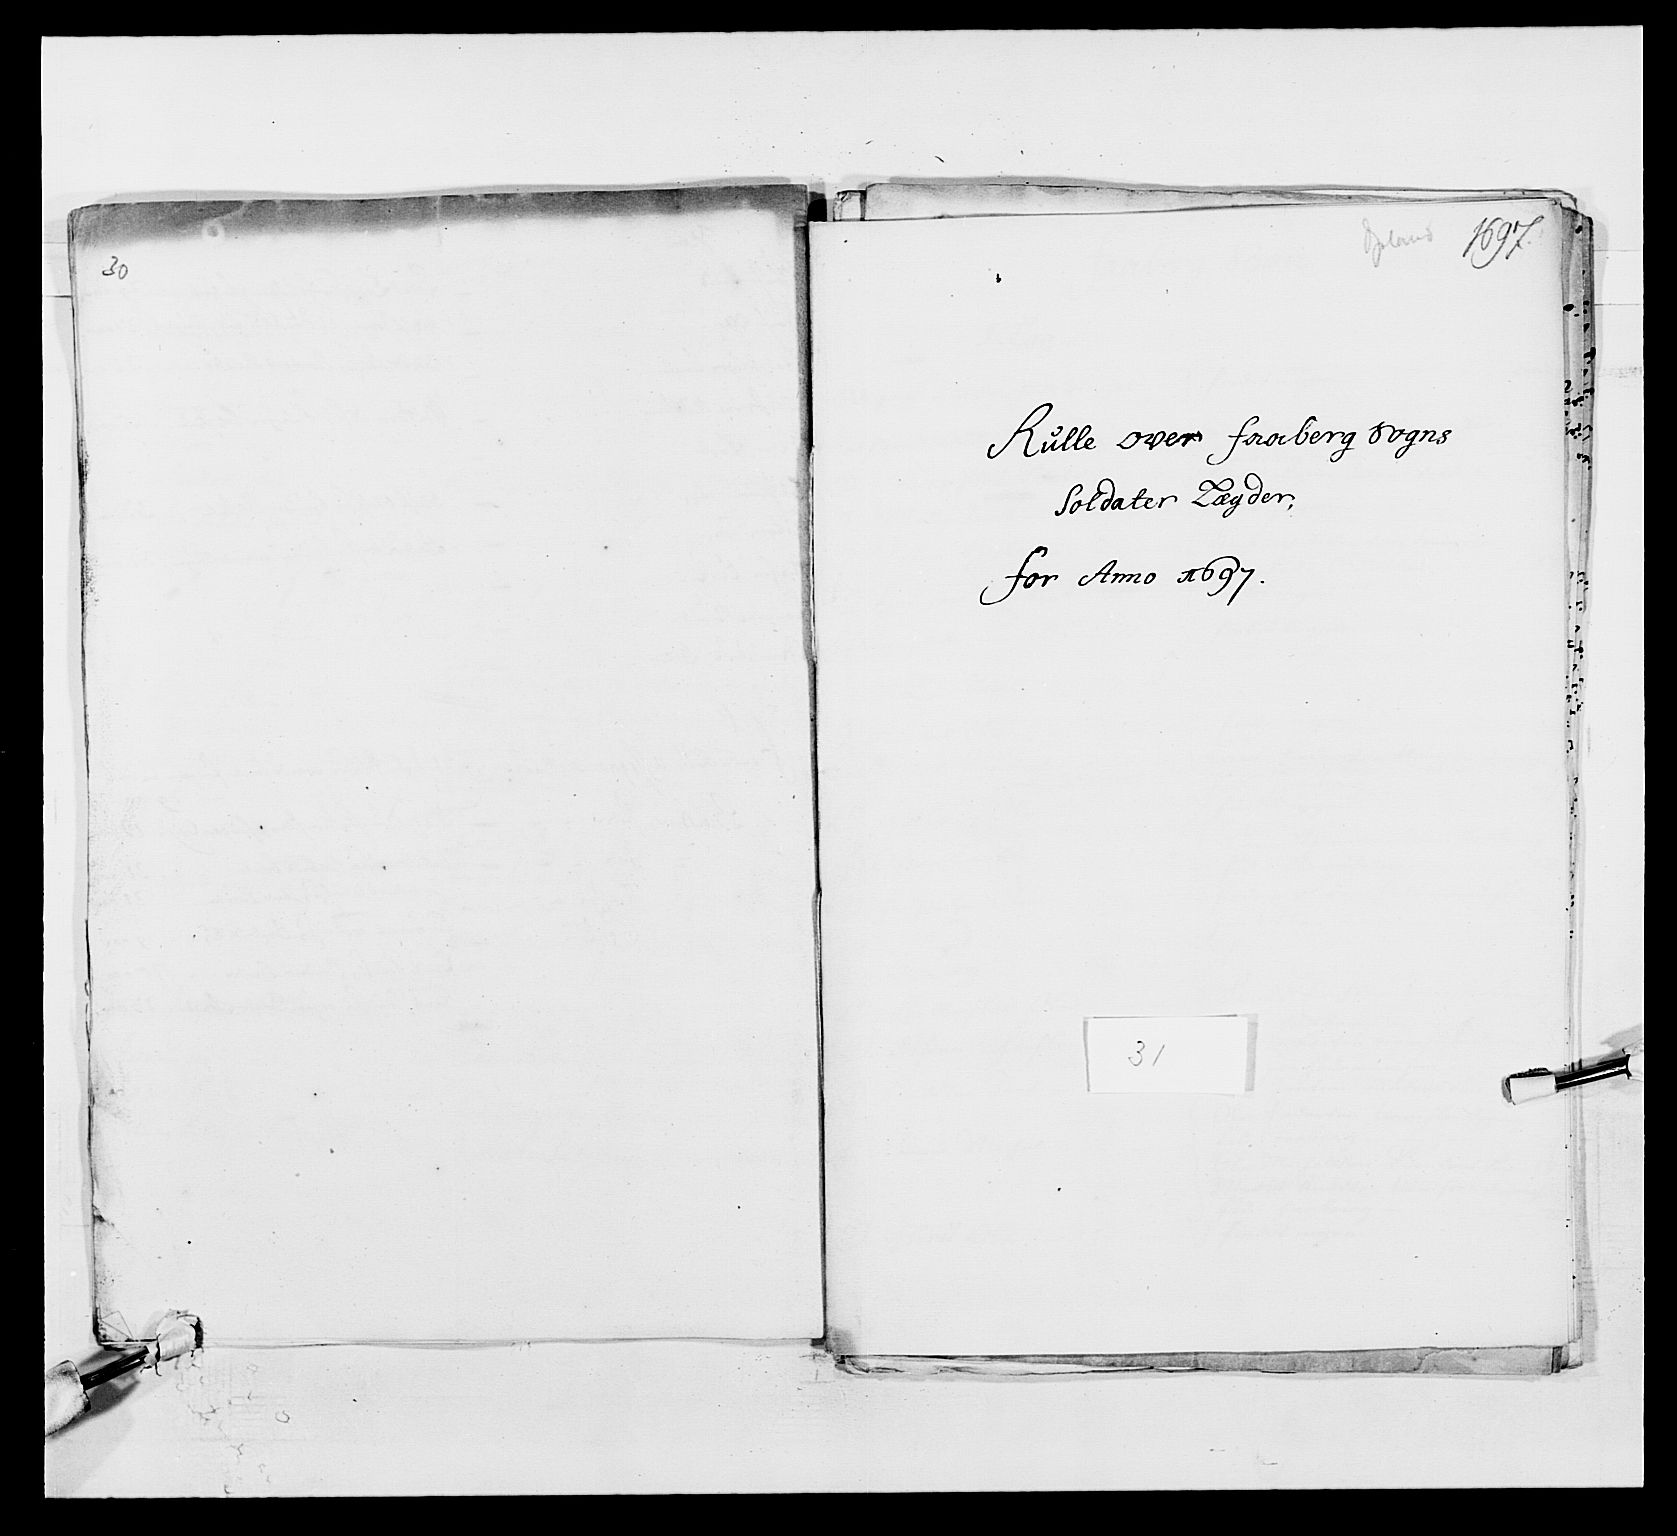 30
Opland 1697.
Rŭlle over faaberg Sogns
Soldater Lægder,
for Anno 1697.
31